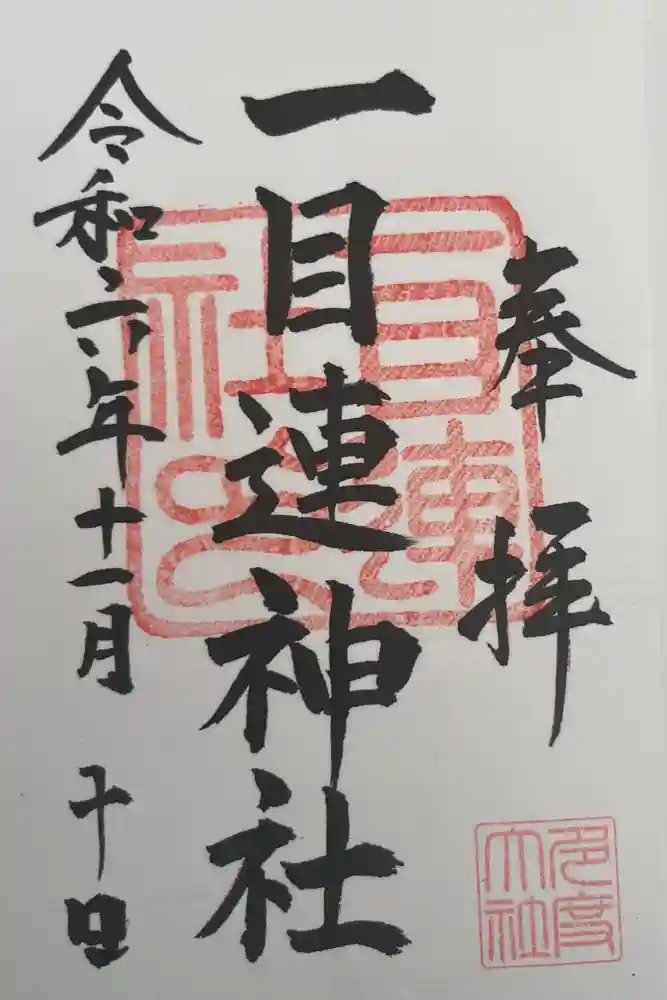 奉拝
一目連神社
令和六年十一月十日
多度大社